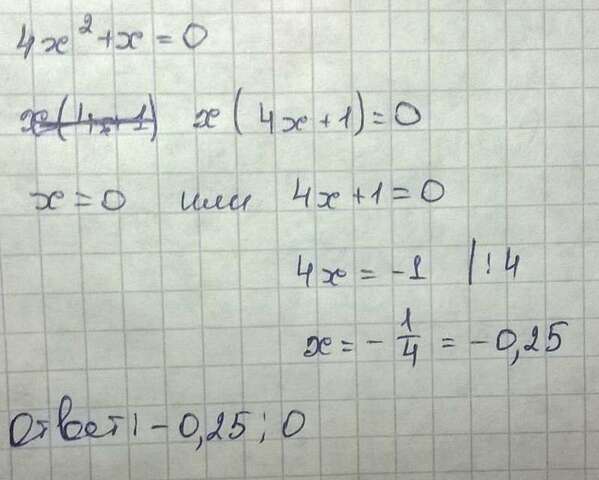 4x² + x = 0
x(4x+1) x(4x+1)=0
x = 0 или 4x+1=0
4x = -1 |:4
x = -1/4 = -0,25
Ответ: -0,25; 0